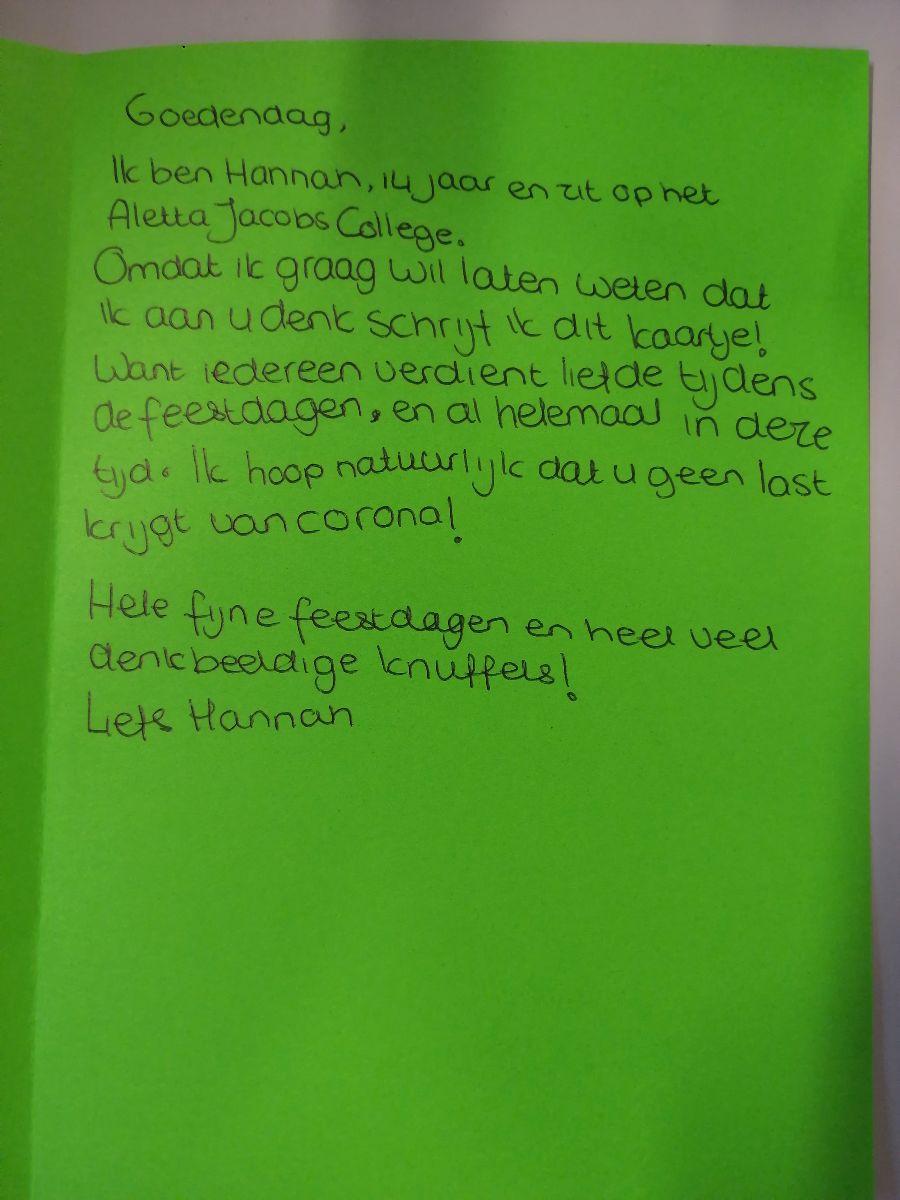 Goedendag,
Ik ben Hannah, 14 jaar en zit op het
Aletta Jacobs College.
Omdat ik graag wil laten weten dat
ik aan u denk schrijf ik dit kaartje!
Want iedereen verdient liefde tijdens
de feestdagen, en al helemaal in deze
tijd. Ik hoop natuurlijk dat u geen last
krijgt van corona!
Hele fijne feestdagen en heel veel
denkbeeldige knuffels!
Liefs Hannah